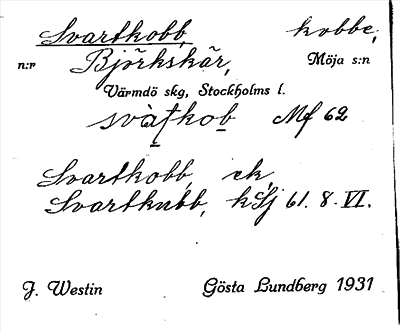 Svartkobb, kobbe,
n:r Björkskär, Möja s:n
Värmdö skg, Stockholms l.
svàṭkob Mf 62
Svartkobb, ek,
Svartkubb, kSj 61. 8. VI.
J. Westin Gösta Lundberg 1931